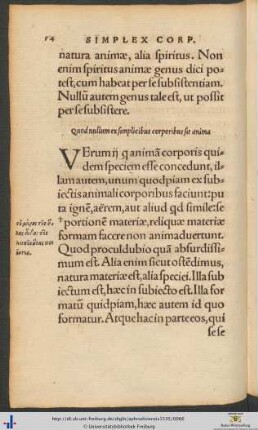 14 SIMPLEX CORP.
natura animæ, alia spiritus. Non
enim spiritus animæ genus dici po-
test, cum habeat per se subsistentiam.
Nullũ autem genus tale est, ut possit
per se subsistere.
Quod nullum ex simplicibus corporibus sit anima
VErum ij q animã corporis qui-
dem speciem esse concedunt, il-
lam autem, unum quodpiam ex sub-
iectis animali corporibus faciunt: pu
ta ignẽ, aërem, aut aliud qd simile: se
†portionẽ materiæ, reliquæ materiæ
formam facere non animaduertunt.
Quod proculdubio quã absurdissi-
mum est. Alia enim sicut ostẽdimus,
natura materiæ est, alia speciei. Illa sub
iectum est, hæc in subiecto est. Illa for
matũ quidpiam, hæc autem id quo
formatur. Atque hac in parte eos, qui
se se
http://dl.ub.uni-freiburg.de/diglit/
© Universitätsbibliothek Freiburg